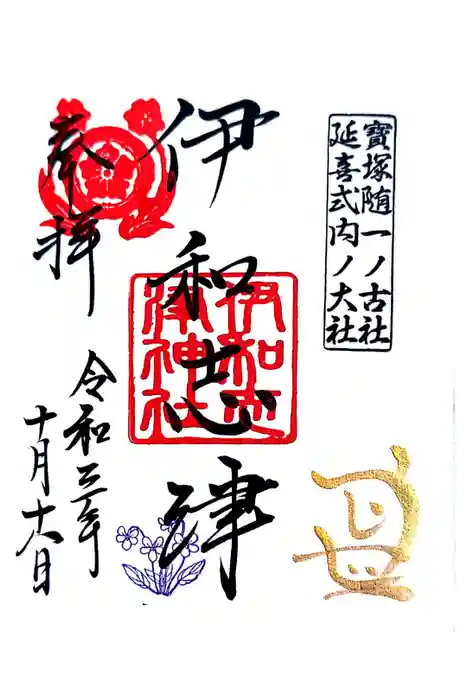 寶塚随一ノ古社
延喜式内ノ大社
伊和志津
伊和志
津神社
奉拝
令和三年
十月十 日